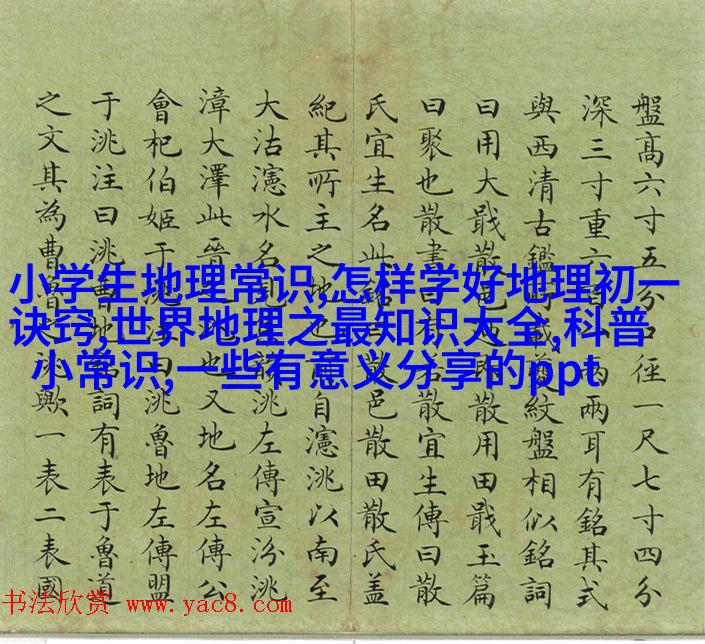 盤高六寸五分口徑一尺七寸四分
深三寸重六兩耳有銘其式
與西清古鑑載夔紋盤相似銘詞
曰用大戢散邑即散用田戢玉篇
曰聚也散書曰散宜生傳曰散
氏宜生名此銘散邑散田散氏蓋
紀其所主之地也自瀗洮以南至
大沽瀗水名洮左傳宣汾洮
漳大澤此晉地也又地名左傳公
會杞伯姬于洮注曰洮魯地左傳盟
于洮注曰洮曹地銘詞有表于魯道
之文其為曹魯之洮歟一表二表國
小学生地理常识,怎样学好地理初一
诀窍,世界地理之最知识大全,科普
小常识,一些有意义分享的ppt
书法欣赏 www.yac8.com